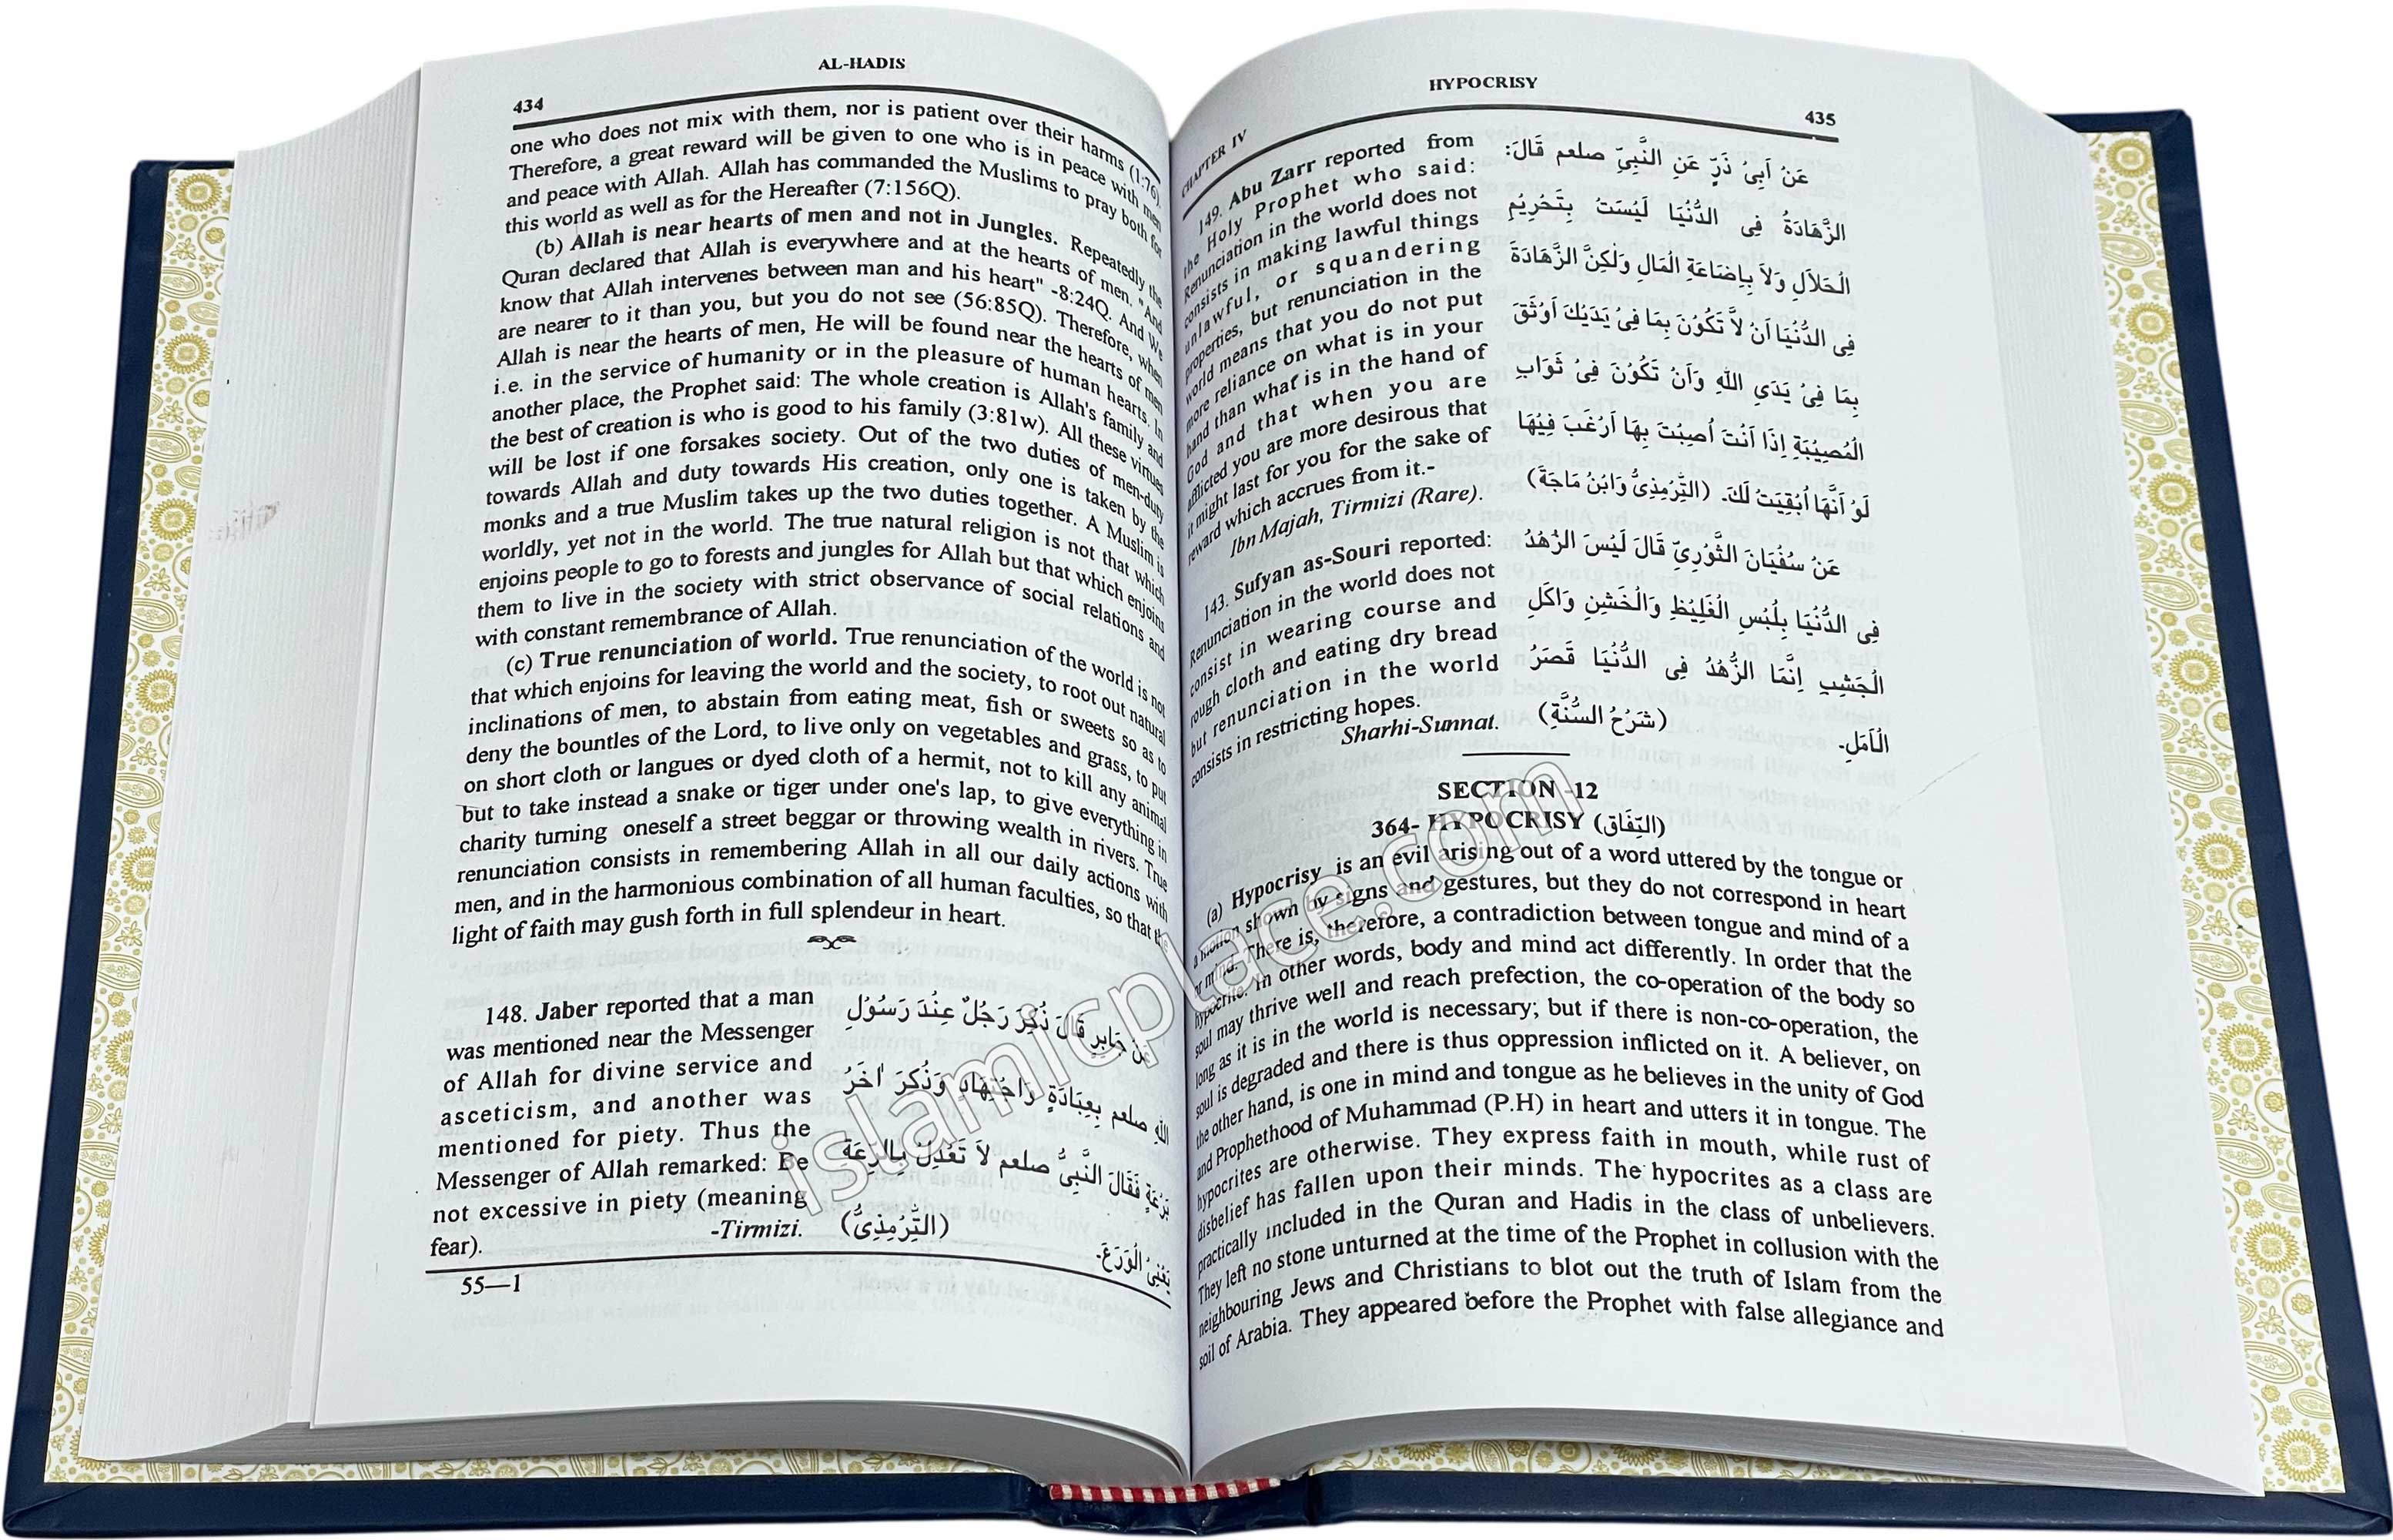 434
AL-HADIS
one who does not mix with them, nor is patient over their harms (1:76).
Therefore, a great reward will be given to one who is in peace with men
and peace with Allah. Allah has commanded the Muslims to pray both for
this world as well as for the Hereafter (7:156Q).
(b) Allah is near hearts of men and not in Jungles. Repeatedly the
Quran declared that Allah is everywhere and at the hearts of men. "And
know that Allah intervenes between man and his heart" -8:24Q. And We
are nearer to it than you, but you do not see (56:85Q). Therefore, when
Allah is near the hearts of men, He will be found near the hearts of men
i.e. in the service of humanity or in the pleasure of human hearts. In
another place, the Prophet said: The whole creation is Allah's family and
the best of creation is who is good to his family (3:81w). All these virtues
will be lost if one forsakes society. Out of the two duties of men-duty
towards Allah and duty towards His creation, only one is taken by the
monks and a true Muslim takes up the two duties together. A Muslim is
worldly, yet not in the world. The true natural religion is not that which
enjoins people to go to forests and jungles for Allah but that which enjoins
them to live in the society with strict observance of social relations and
with constant remembrance of Allah.
(c) True renunciation of world. True renunciation of the world is not
that which enjoins for leaving the world and the society, to root out natural
inclinations of men, to abstain from eating meat, fish or sweets so as to
deny the bountles of the Lord, to live only on vegetables and grass, to put
on short cloth or langues or dyed cloth of a hermit, not to kill any animal
but to take instead a snake or tiger under one's lap, to give everything in
charity turning oneself a street beggar or throwing wealth in rivers. True
renunciation consists in remembering Allah in all our daily actions with
men, and in the harmonious combination of all human faculties, so that the
light of faith may gush forth in full splendeur in heart.
148. Jaber reported that a man
was mentioned near the Messenger
of Allah for divine service and
asceticism, and another was
mentioned for piety. Thus the
Messenger of Allah remarked: Be
not excessive in piety (meaning
fear).
-Tirmizi.
عَنْ جَابِرٍ قَالَ ذُكِرَ رَجُلٌ عِنْدَ رَسُوْلِ
اللهِ صلعم بِعِبَادَةٍ وَاجْتِهَادٍ وَذُكِرَ اٰخَرُ
بَرْعَةٍ فَقَالَ النَّبِىُّ صلعم لاَ تَعْدِلْ بِالرِّعَةِ
يَعْنِىْ الْوَرَعَ-
(التِّرْمِذِىُّ)
55—1
HYPOCRISY
435
CHAPTER IV
149. Abu Zarr reported from
the Holy Prophet who said:
Renunciation in the world does not
consists in making lawful things
unlawful, or squandering
properties, but renunciation in the
world means that you do not put
more reliance on what is in your
hand than what is in the hand of
God and that when you are
afflicted you are more desirous that
it might last for you for the sake of
reward which accrues from it.-
Ibn Majah, Tirmizi (Rare).
عَنْ اَبِىْ ذَرٍّ عَنِ النَّبِىِّ صلعم قَالَ:
الزَّهَادَةُ فِى الدُّنْيَا لَيْسَتْ بِتَحْرِيْمِ
الْحَلاَلِ وَلاَ بِاِضَاعَةِ الْمَالِ وَلٰكِنَّ الزَّهَادَةَ
فِى الدُّنْيَا اَنْ لاَّ تَكُوْنَ بِمَا فِىْ يَدَيْكَ اَوْثَقَ
بِمَا فِىْ يَدَىِ اللهِ وَاَنْ تَكُوْنَ فِىْ ثَوَابِ
الْمُصِيْبَةِ اِذَا اَنْتَ اُصِبْتَ بِهَا اَرْغَبَ فِيْهَا
لَوْ اَنَّهَا اُبْقِيَتْ لَكَ- (التِّرْمِذِىُّ وَابْنُ مَاجَةَ)
143. Sufyan as-Souri reported:
Renunciation in the world does not
consist in wearing course and
rough cloth and eating dry bread
but renunciation in the world
consists in restricting hopes.
Sharhi-Sunnat.
عَنْ سُفْيَانَ الثَّوْرِىِّ قَالَ لَيْسَ الزُّهْدُ
فِى الدُّنْيَا بِلُبْسِ الْغَلِيْظِ وَالْخَشِنِ وَاَكْلِ
الْجَشِبِ اِنَّمَا الزُّهْدُ فِى الدُّنْيَا قَصَرُ
الْاَمَلِ-
(شَرْحُ السُّنَّةِ)
SECTION -12
364- HYPOCRISY (النِّفَاق)
(a) Hypocrisy is an evil arising out of a word uttered by the tongue or
a motion shown by signs and gestures, but they do not correspond in heart
or mind. There is, therefore, a contradiction between tongue and mind of a
hypocrite. In other words, body and mind act differently. In order that the
soul may thrive well and reach prefection, the co-operation of the body so
long as it is in the world is necessary; but if there is non-co-operation, the
soul is degraded and there is thus oppression inflicted on it. A believer, on
the other hand, is one in mind and tongue as he believes in the unity of God
and Prophethood of Muhammad (P.H) in heart and utters it in tongue. The
hypocrites are otherwise. They express faith in mouth, while rust of
disbelief has fallen upon their minds. The hypocrites as a class are
practically included in the Quran and Hadis in the class of unbelievers.
They left no stone unturned at the time of the Prophet in collusion with the
neighbouring Jews and Christians to blot out the truth of Islam from the
soil of Arabia. They appeared before the Prophet with false allegiance and
islamicplace.com